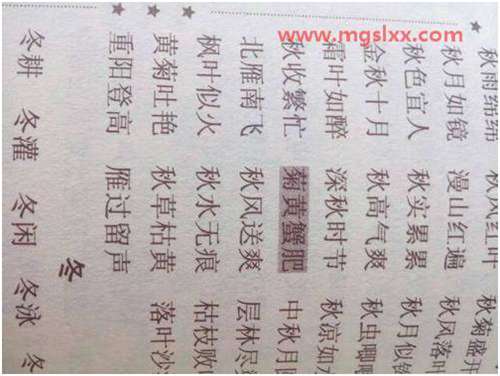 www.mgslxx.com
秋雨绵绵 秋风红叶 秋菊盛开
秋月如镜 漫山红遍 秋风落叶
秋色宜人 秋实累累 秋月似
金秋十月 秋高气爽 秋虫唧
霜叶如醉 深秋时节 秋凉如
秋收繁忙 菊黄蟹肥 中秋月
北雁南飞 秋风送爽 层林尽
枫叶似火 秋水无痕 枯枝败
黄菊吐艳 秋草枯黄 落叶沙
重阳登高 雁过留声
冬
冬耕 冬灌 冬闲 冬泳 冬